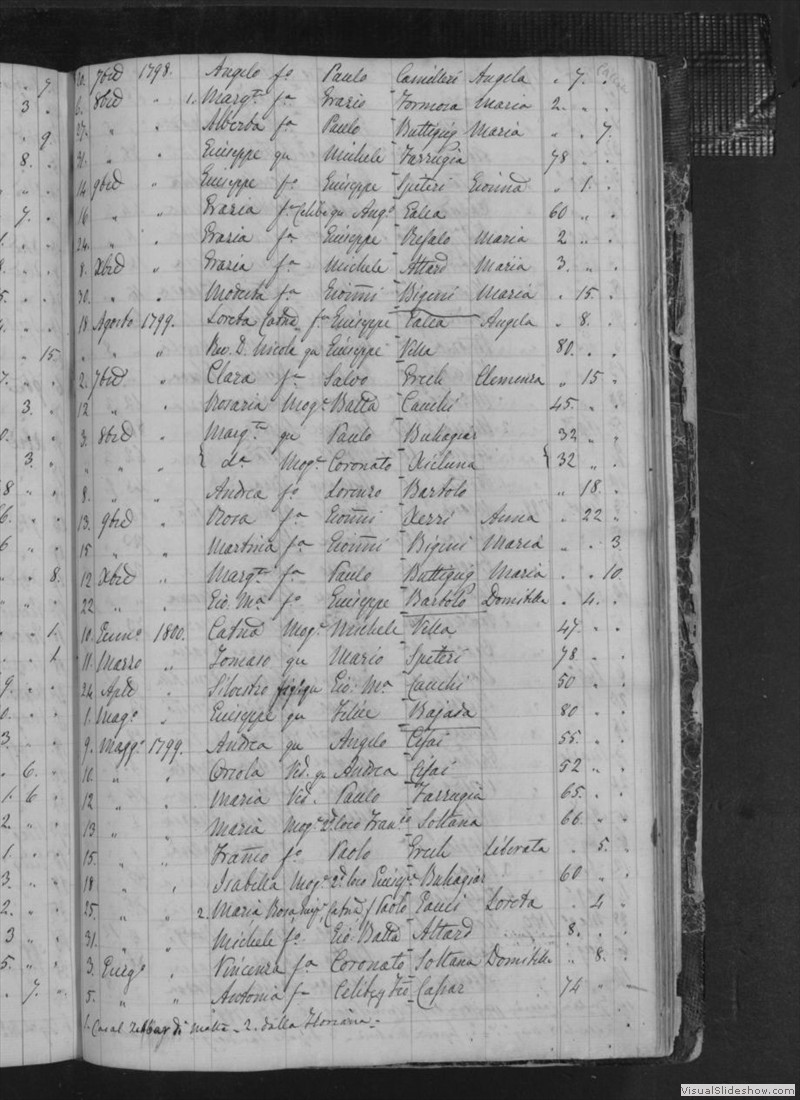 7.
3
9.
8.
7.
15
3.
3.
8
6.
6
8.
1.
1.
9.
0.
3
6.
1. 6
2.
1.
3.
2.
3
5.
7.
10. 7bre 1798. Angelo fo Paulo Camilleri Angela " 7. "
6. 8bre " 1. Margta fa Grazio Formosa Maria 2. " "
27. " " Alberta fa Paulo Buttigieg Maria " " 7.
31. " " Giuseppe qu Michele Farrugia 78 " "
14 9bre " Giuseppe fo Giuseppe Speteri Gionna " 1. "
16 " " Grazia fa Celibe qu Ango Galea 60 " "
24. " " Grazia fa Giuseppe Refalo Maria 2 " "
8. Xbre " Grazia fa Michele Attard Maria 3. " "
30. " " Modesta fa Gionni Bigeni Maria " 15. "
18 Agosto 1799. Loreta Catna fa Giuseppe Galea Angela " 8. "
" " " Rev. D. Nicola qu Giuseppe Vella 80. " "
2. 7bre " Clara fa Salvo Grech Clemenza " 15 "
12 " " Rosaria Moge Batta Cauchi 45. " "
3. 8bre " Margta qu Paulo Buhagiar 32 " "
" " " { da Moge Coronato Xicluna { 32 " "
8. " " Andrea fo Lorenzo Bartolo " 18. "
13. 9bre " Rosa fa Gionni Xerri Anna " 22 "
15 " " Martina fa Gionni Bigeni Maria " " 3
12 Xbre " Margta fa Paulo Buttigieg Maria " " 10.
22 " " Gio. Ma fo Giuseppe Bartolo Domitilla " 4. "
10. Genno 1800. Catna Moge Michele Vella 47. " "
11. Marzo " Tomaso qu Mario Speteri 78. " "
24. Aple " Silvestro qu Gio. Ma Cauchi 50 " "
1. Mago " Giuseppe qu Felice Bajada 80 " "
9. Maggo 1799. Andrea qu Angelo Cefai 55. " "
10. " " Orsola Vid. qu Andrea Cefai 52 " "
12 " " Maria Vid. Paulo Farrugia 65. " "
13 " " Maria Moge 2do loco Franco Soltana 66. " "
15. " " Franco fo Paolo Grech Liberata " 5. "
18 " " Isabella Moge 2do loco Giusepe Buhagiar 60 " "
25. " " 2. Maria Rosa, Catna f Paolo Gauci Loreta " 4 "
31. " " Michele fo Gio Batta Attard 8. " "
3. Giugo " Vincenza fa Coronato Soltana Domitilla " 8. "
5. " " Antonia fa Caspar 74 " "
1. Casal Zebbug di Malta - 2. dalla Floriana -
VisualSlideshow.com